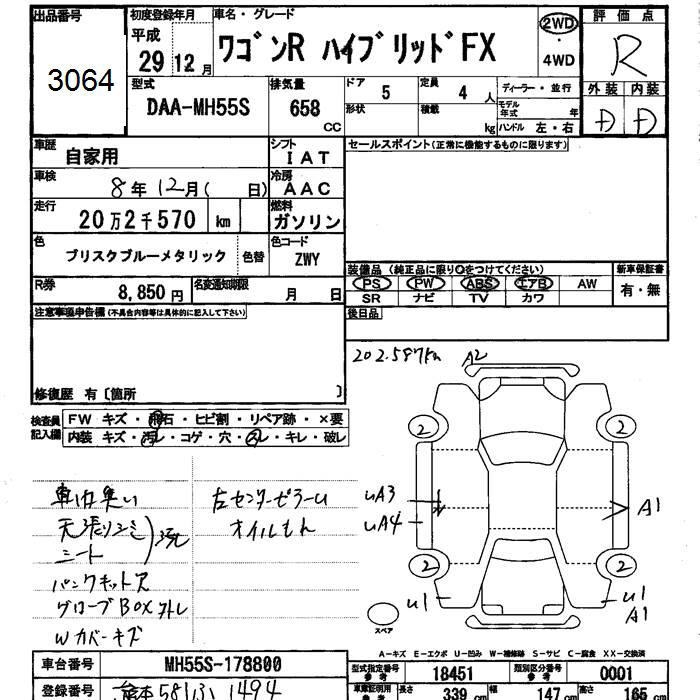 出品番号 初度登録年月 車名・グレード 評価点
平成 29 12月 ワゴンR ハイブリッドFX 2WD・4WD R
3064
型式 排気量 ドア 5 定員 4人 ディーラー・並行 外装 内装
DAA-MH55S 658 CC 形状 積載 kg モデル年式 年 ハンドル 左・右 D D
車歴 自家用 シフト IAT セールスポイント(正常に機能するものに限ります)
車検 8年12月( 日) 冷房 AAC
走行 20万2千570 km 燃料 ガソリン
色 ブリスクブルーメタリック 色替 色コード ZWY
装備品 (純正品に限り○をつけてください) 新車保証書
R券 8,850円 名変通知期限 月 日 PS PW ABS エアB AW 有・無
SR ナビ TV カワ
注意事項申告欄(不具合内容等は具体的に記入して下さい) 後日品
202.587km A2
修復歴 有〔箇所 〕
検査員記入欄 FW キズ・飛石・ヒビ割・リペア跡・×要
内装 キズ・汚レ・コゲ・穴・スレ・キレ・破レ
2 2
車内臭い 左センターピラーU
UA3 A1
天張りシミ オイルもれ UA4
シート 汚れ
パンクキットス 2 2
グローブBOX外レ U1 U1
A1
Wカバーキズ スペア
A-キズ E-エクボ U-凹み W-補修跡 S-サビ C-腐食 XX-交換済
車台番号 MH55S-178800 型式指定番号 参考 18451 類別区分番号 参考 0001
登録番号 熊本581ふ1494 車検証明用 参考 長さ 339cm 幅 147cm 高さ 165cm